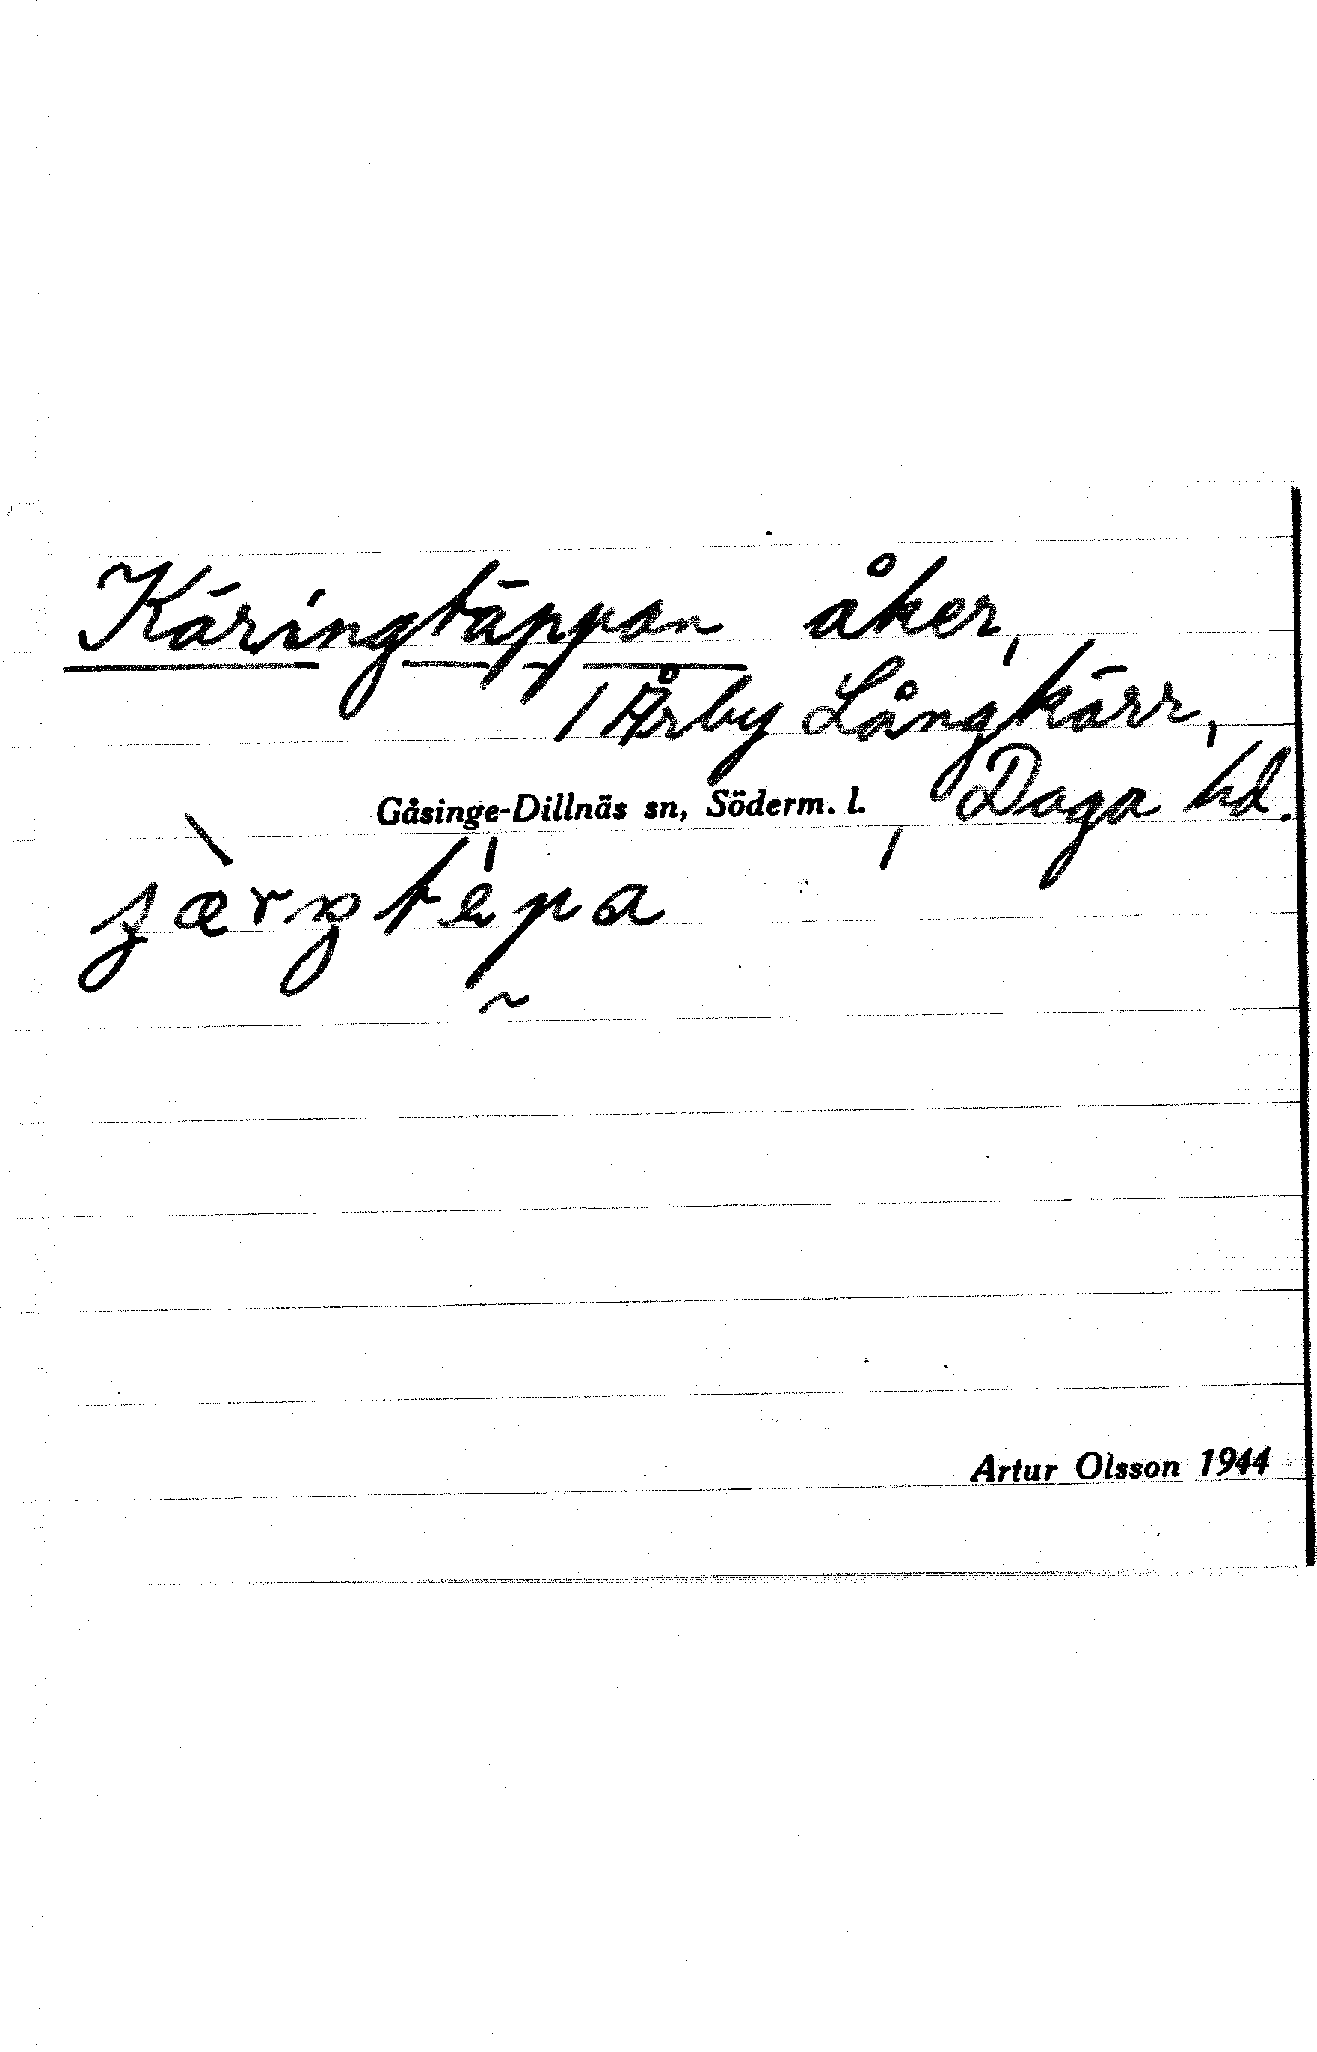 Käringtäppan åker,
/ Årby Långkärr,
Gåsinge-Dillnäs sn, Söderm. l. , Daga hd.
Artur Olsson 1944